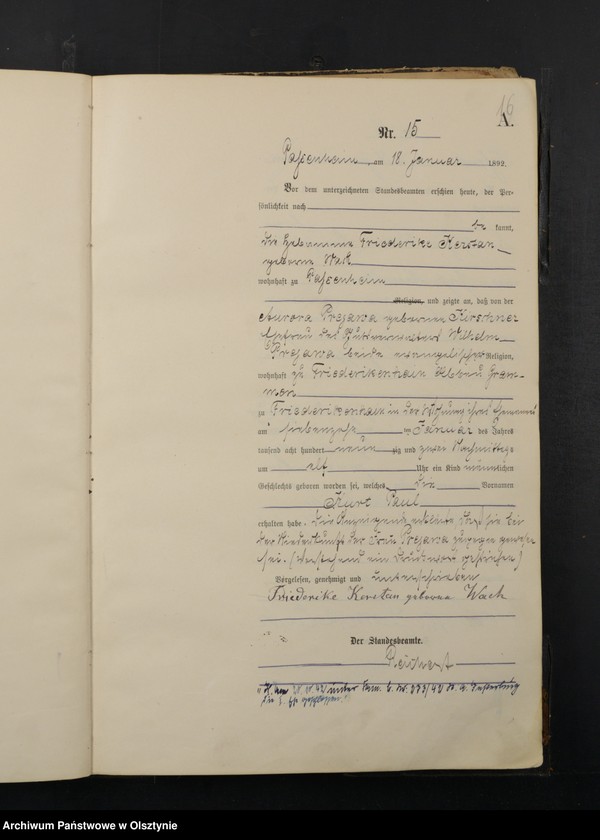 16
A.
Nr. 15
Passenheim, am 18. Januar 1899.
Vor dem unterzeichneten Standesbeamten erschien heute, der Per-
sönlichkeit nach
be kannt,
die Hebamme Friederike Kerstan
geborene Wach
wohnhaft zu Passenheim
Religion, und zeigte an, daß von der
Aurora Prezawa geborenen Kirschner
Ehefrau des Wilhelm
Prezawa beide evangelischer Religion,
wohnhaft zu Friederikenhain
zu Friederikenhain in der Wohnung ihres Ehemannes
am siebenzehn ten Januar des Jahres
tausend acht hundert neun zig und Nachmittags
um elf Uhr ein Kind männlichen
Geschlechts geboren worden sei, welches die Vornamen
Kurt Paul
erhalten habe. Die Anzeigende erklärte, daß sie bei
der Niederkunft der Frau Prezawa zugegen gewesen
sei. (Vorstehend ein Druckwort gestrichen)
Vorgelesen, genehmigt und unterschrieben
Friederike Kerstan geborene Wach
Der Standesbeamte.
Reichert
unter
Archiwum Państwowe w Olsztynie